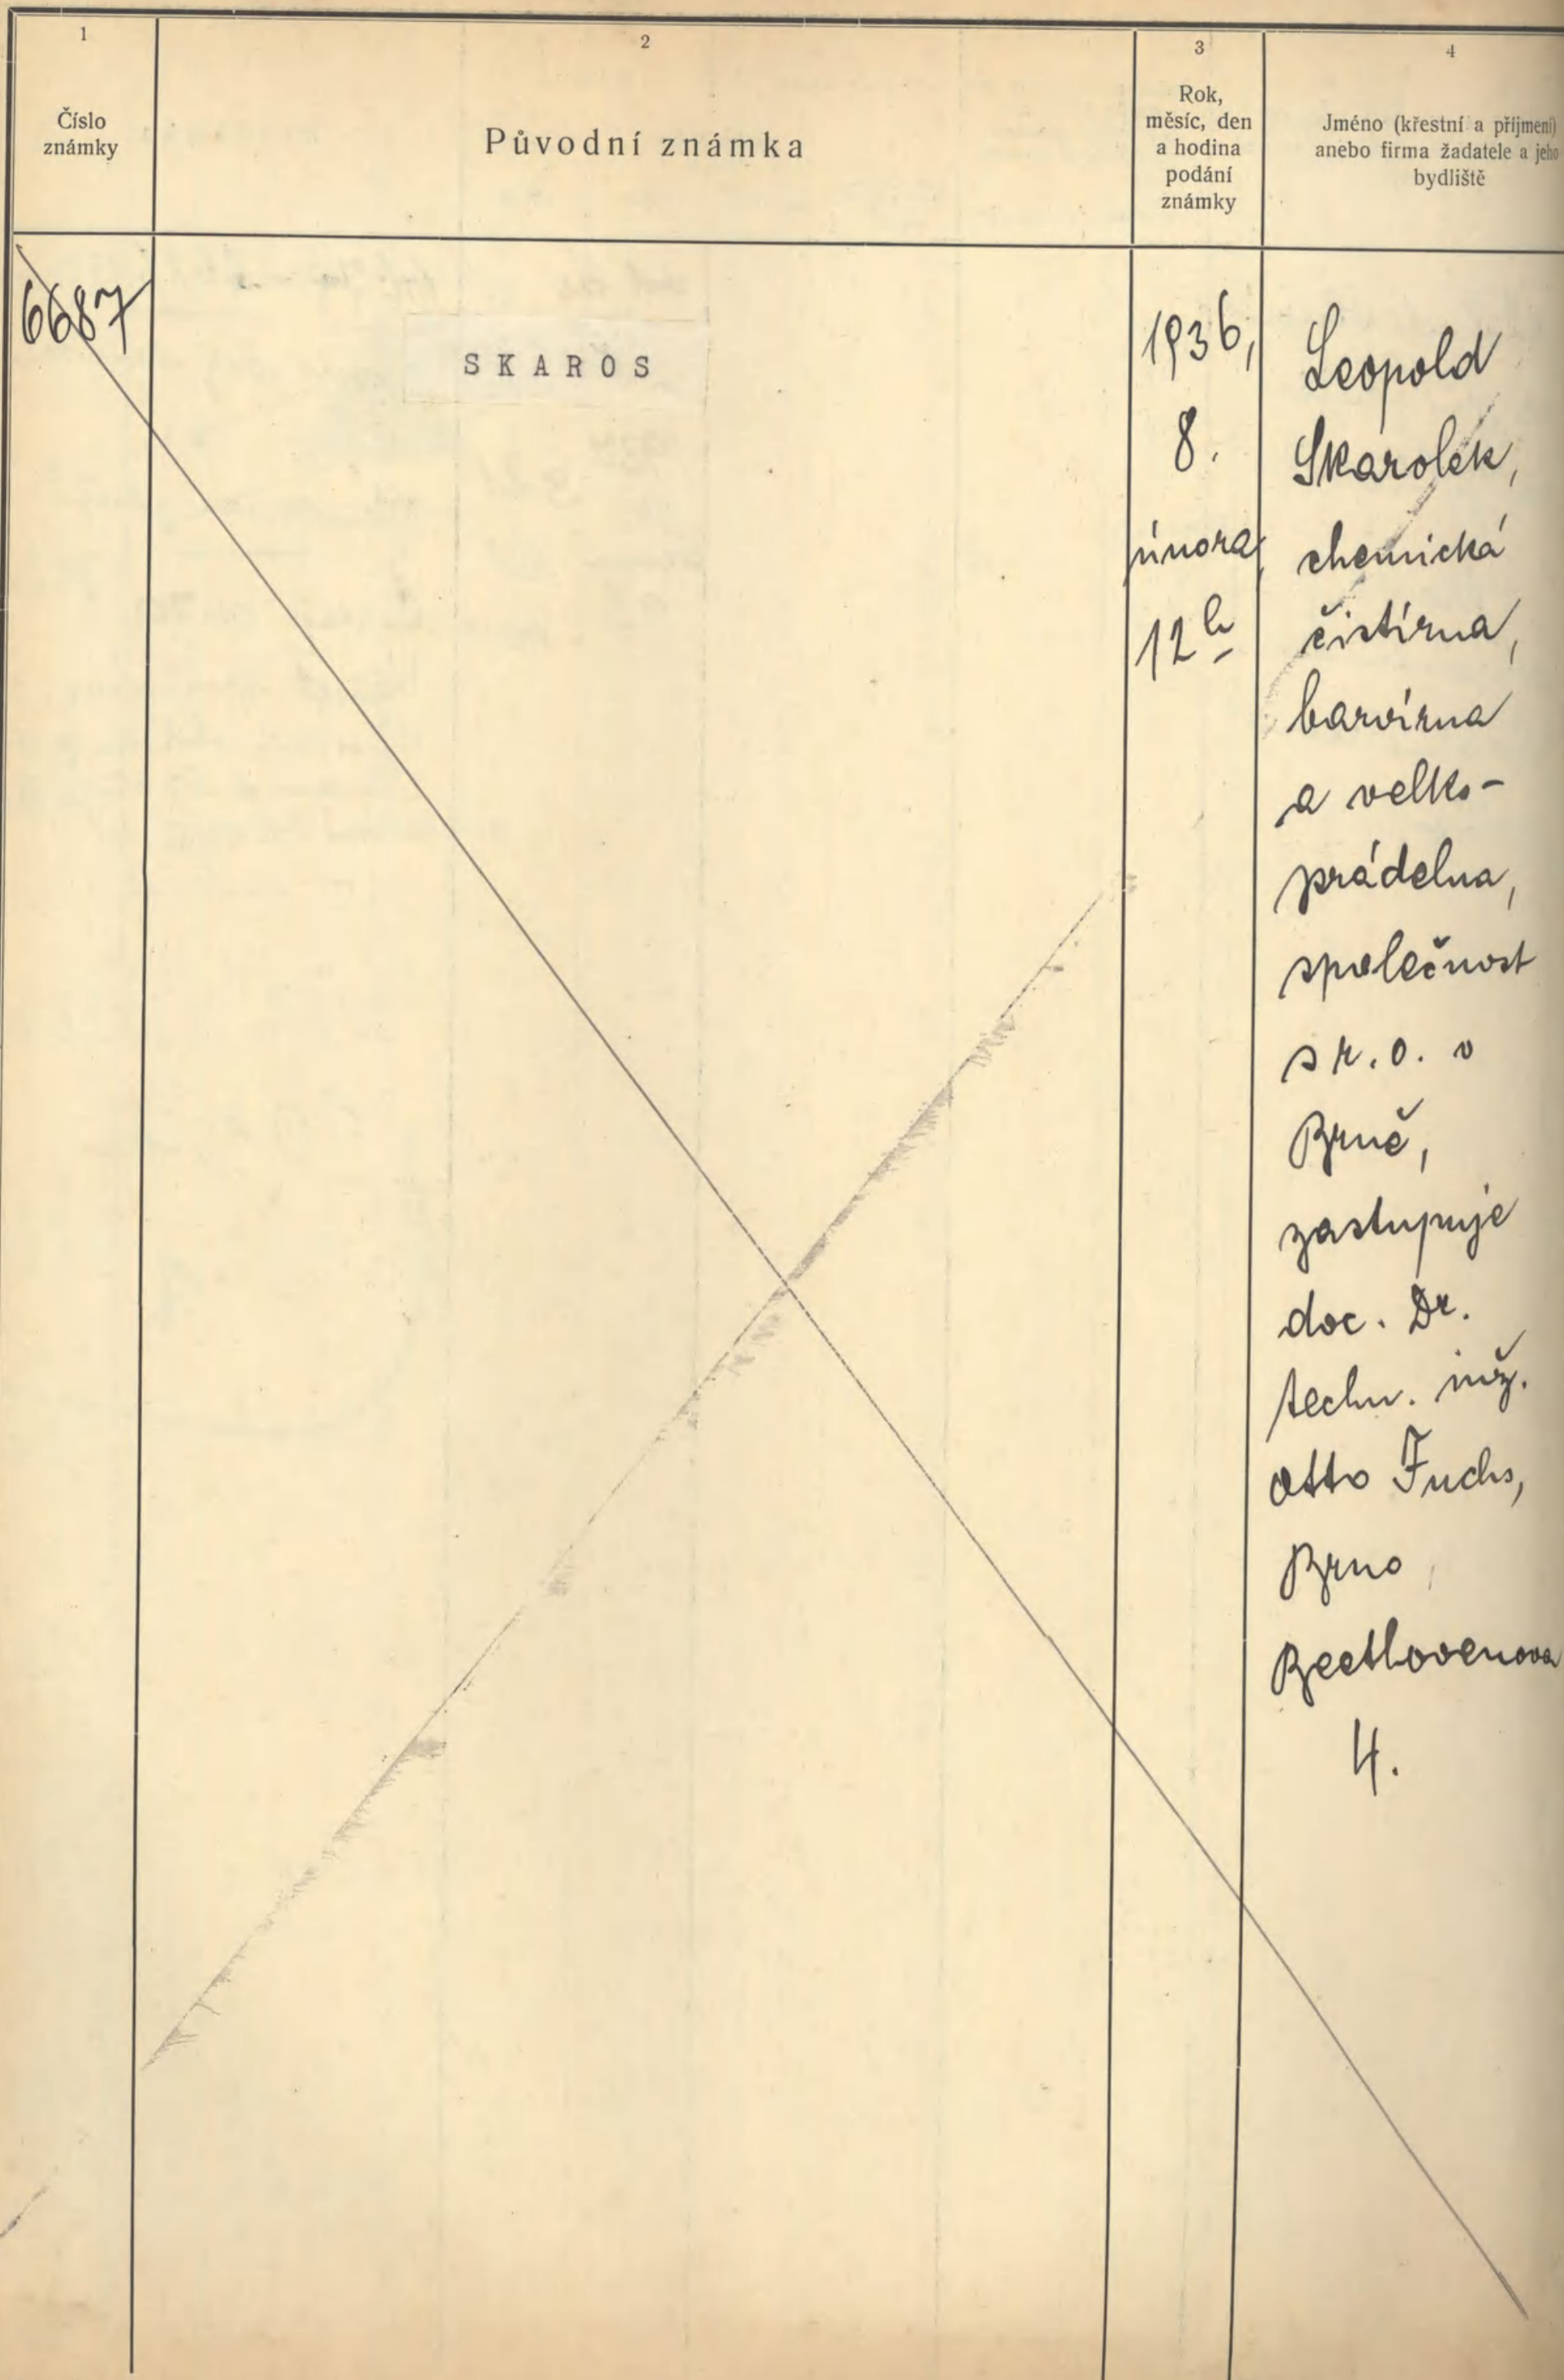 1
Číslo
známky
2
Původní známka
3
Rok,
měsíc, den
a hodina
podání
známky
4
Jméno (křestní a příjmení)
anebo firma žadatele a jeho
bydliště
6687
SKAROS
1936,
8.
února,
12h
Leopold
Skarolek,
chemická
čistírna,
barvírna
a velko-
prádelna,
společnost
s r. o. v
Brně,
zastupuje
doc. Dr.
techn. inž.
Otto Fuchs,
Brno,
Beethovenova
4.